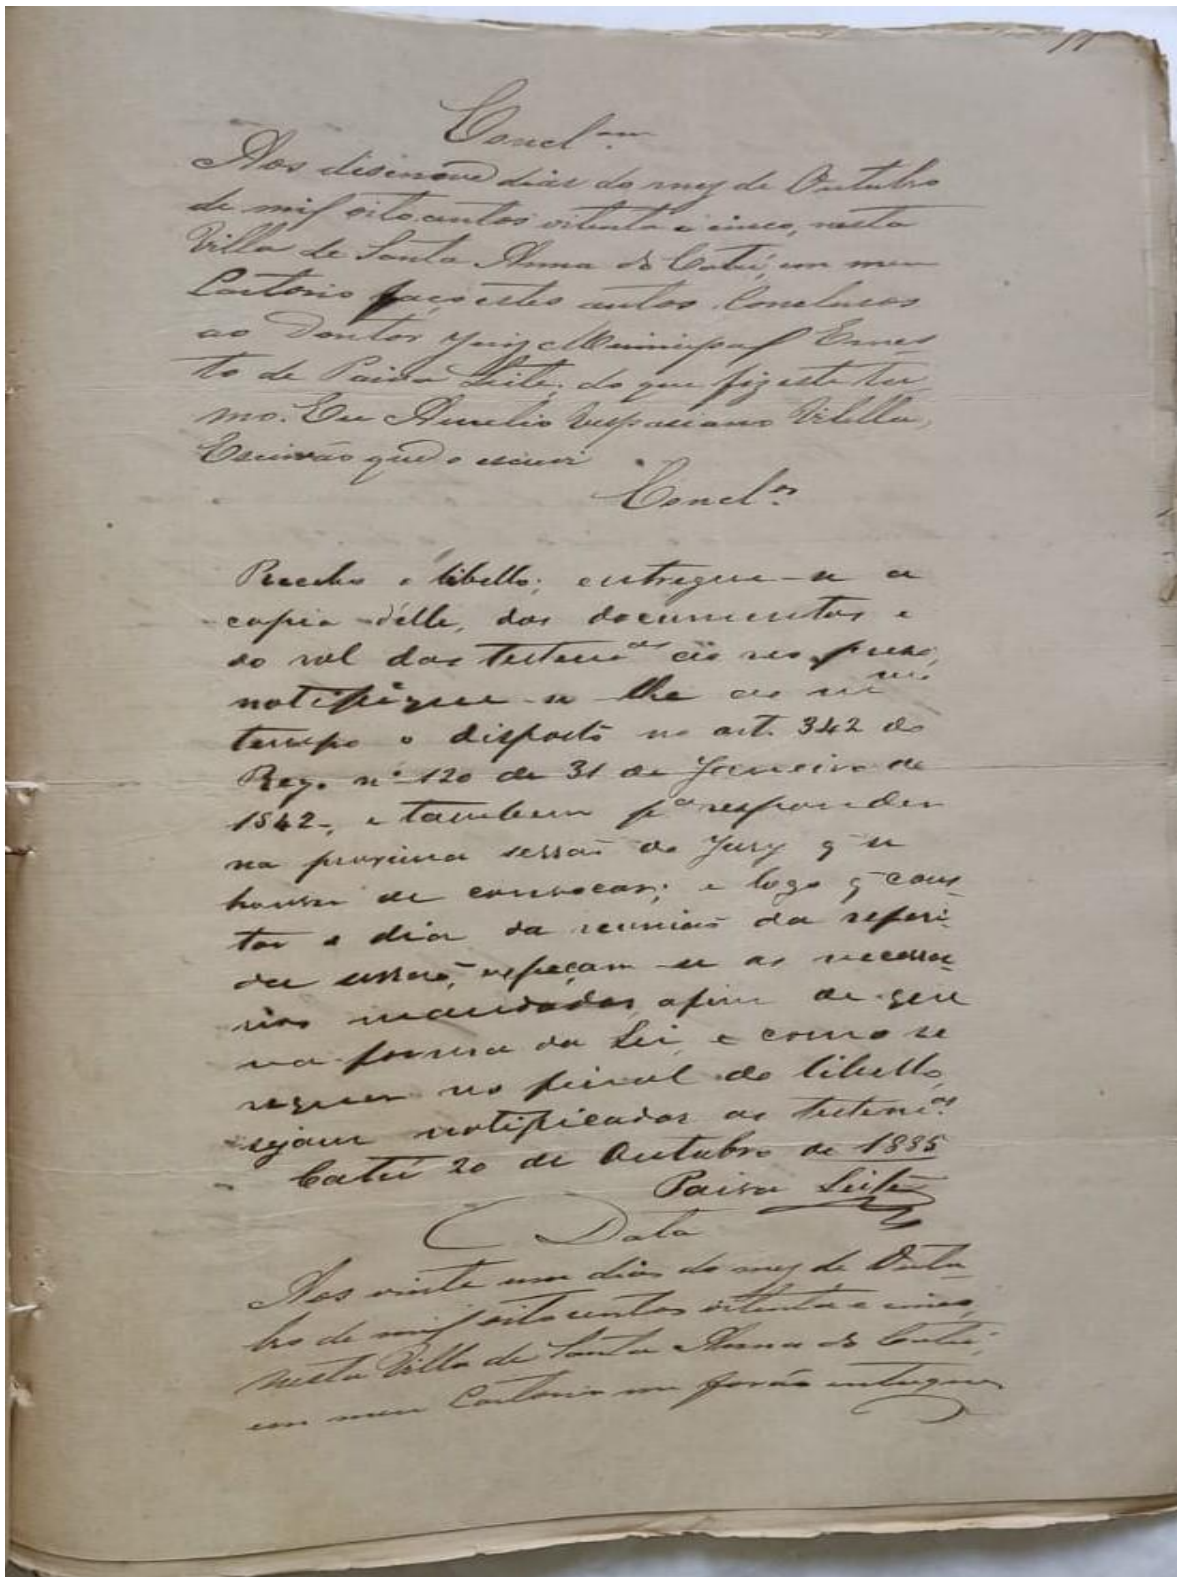 Concl.am
Aos disenove dias do mez de Outubro
de mil oito centos oitenta e cinco, nesta
Villa de Santa Anna do Catú, em meu
Cartorio faço estes autos Conclusos
ao Doutor Juiz Municipal Ernes-
to de Paiva Leite, do que fiz este ter-
mo. Eu Aurelio Vespasiano Vilella,
Escrivão que o escrevi
Concl.os
Recebo o libello; entregue-se a
copia d'elle, dos documentos e
do rol das testem.as ao reo preso,
notifique-se lhe ao m.mo
tempo o disposto no art. 342 do
Reg. nº 120 de 31 de Janeiro de
1842, e tambem p.a responder
na proxima sessão do Jury q se
houver de convocar; e logo q cons-
tar o dia da reunião da referi-
da sessão, expeçam-se os necessa-
rios mandados, afim de que
na forma da Lei, e como se
requer no final do libello,
sejam notificadas as testem.as
Catú 20 de Outubro de 1885
Paiva Leite
Data
Aos vinte um dias do mez de Outu-
bro de mil oito centos oitenta e cinco,
nesta Villa de Santa Anna do Catú,
em meu Cartorio me forão entregues